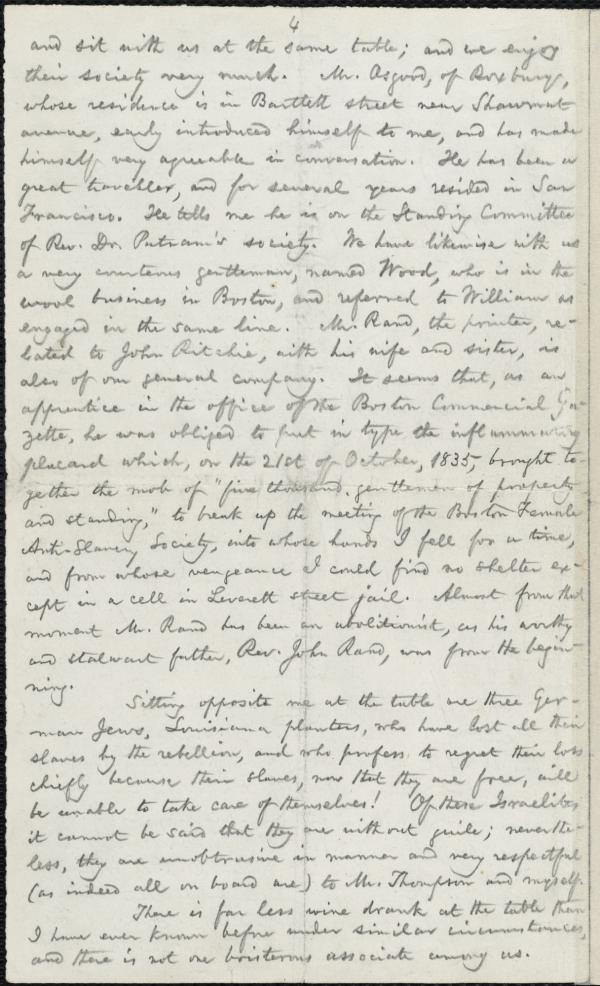 4
and sit with us at the same table; and we enjoy
their society very much. Mr. Osgood, of Roxbury,
whose residence is in Bartlett street near Shawmut
avenue, early introduced himself to me, and has made
himself very agreeable in conversation. He has been a
great traveller, and for several years resided in San
Francisco. He tells me he is on the Standing Committee
of Rev. Dr. Putnam's society. We have likewise with us
a very courteous gentleman, named Wood, who is in the
wool business in Boston, and referred to William as
engaged in the same line. Mr. Rand, the printer, re-
lated to John Ritchie, with his wife and sister, is
also of our general company. It seems that, as an
apprentice in the office of the Boston Commercial Ga-
zette, he was obliged to put in type the inflammatory
placard which, on the 21st of October, 1835, brought to-
gether the mob of "five thousand gentlemen of property
and standing," to break up the meeting of the Boston Female
Anti-Slavery Society, into whose hands I fell for a time,
and from whose vengeance I could find no shelter ex-
cept in a cell in Leverett street jail. Almost from that
moment Mr. Rand has been an abolitionist, as his worthy
and stalwart father, Rev. John Rand, was from the begin-
ning.
Sitting opposite me at the table are three Ger-
man Jews, Louisiana planters, who have lost all their
slaves by the rebellion, and who profess to regret their loss
chiefly because their slaves, now that they are free, will
be unable to take care of themselves! Of these Israelites
it cannot be said that they are without guile; neverthe-
less, they are unobtrusive in manner and very respectful
(as indeed all on board are) to Mr. Thompson and myself.
There is far less wine drank at the table than
I have ever known before under similar circumstances,
and there is not one boisterous associate among us.